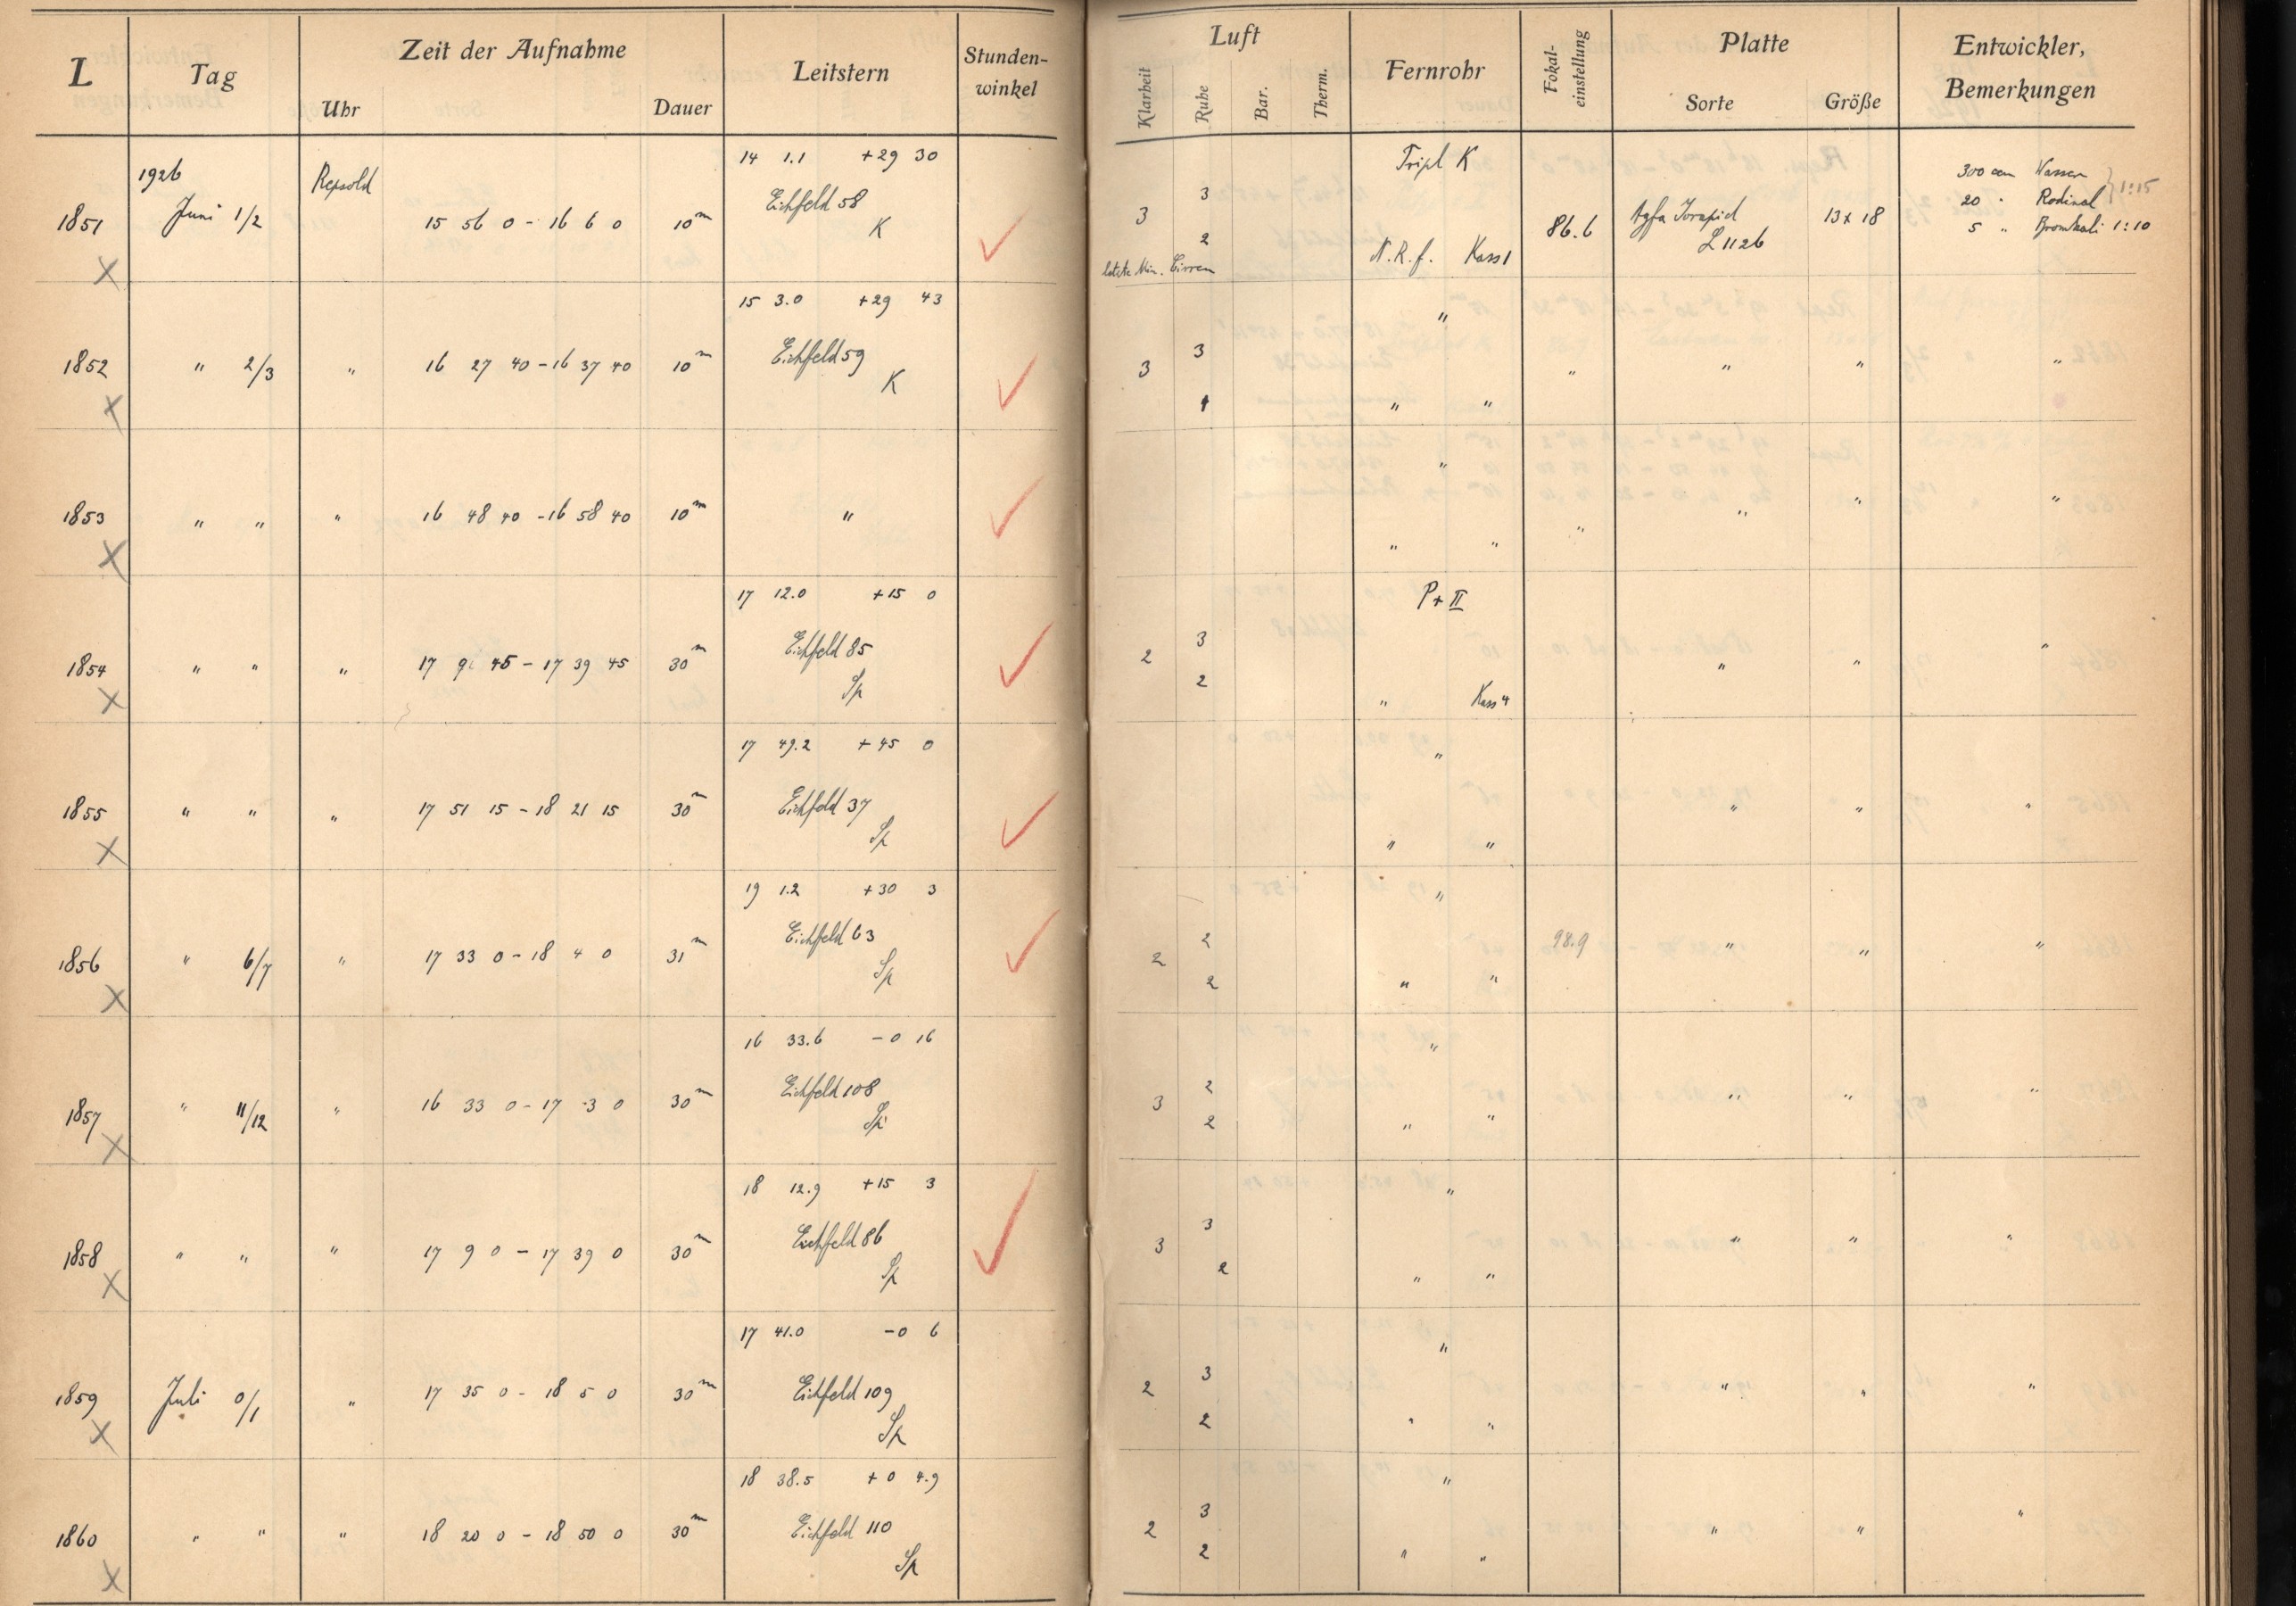 L Tag Zeit der Aufnahme Leitstern Stunden-winkel Luft Fernrohr Fokal-einstellung Platte Entwickler, Bemerkungen
Uhr Dauer Klarheit Ruhe Bar. Therm. Sorte Größe
14 1.1 +29 30 Tripl K
1926 Repsold 300 ccm Wasser
1851 Juni 1/2 15 56 0 - 16 6 0 10m Eichfeld 58 3 3 86.6 Agfa 13x18 20 " Rodinal } 1:15
K 2 L 1126 5 " Bromkali 1:10
X letzte Min. Cirren N.R.f. Kass 1
15 3.0 +29 43 "
1852 " 2/3 " 16 27 40 - 16 37 40 10m Eichfeld 59 3 3 " " " "
X K 1 " "
"
1853 " " " 16 48 40 - 16 58 40 10m " " " " "
X " "
17 12.0 +15 0 P+II
1854 " " " 17 9 45 - 17 39 45 30m Eichfeld 85 2 3 " " "
X Sp 2 " Kass 4
17 49.2 +45 0 "
1855 " " " 17 51 15 - 18 21 15 30m Eichfeld 37 " " "
X Sp " "
19 1.2 +30 3 "
1856 " 6/7 " 17 33 0 - 18 4 0 31m Eichfeld 63 2 2 98.9 " " "
X Sp 2 " "
16 33.6 -0 16 "
1857 " 11/12 " 16 33 0 - 17 3 0 30m Eichfeld 108 3 2 " " "
X Sp 2 " "
18 12.9 +15 3 "
1858 " " " 17 9 0 - 17 39 0 30m Eichfeld 86 3 3 " " "
X Sp 2 " "
17 41.0 -0 6 "
1859 Juli 0/1 " 17 35 0 - 18 5 0 30m Eichfeld 109 2 3 " " "
X Sp 2 " "
18 38.5 +0 4.9 "
1860 " " " 18 20 0 - 18 50 0 30m Eichfeld 110 2 3 " " "
X Sp 2 " "